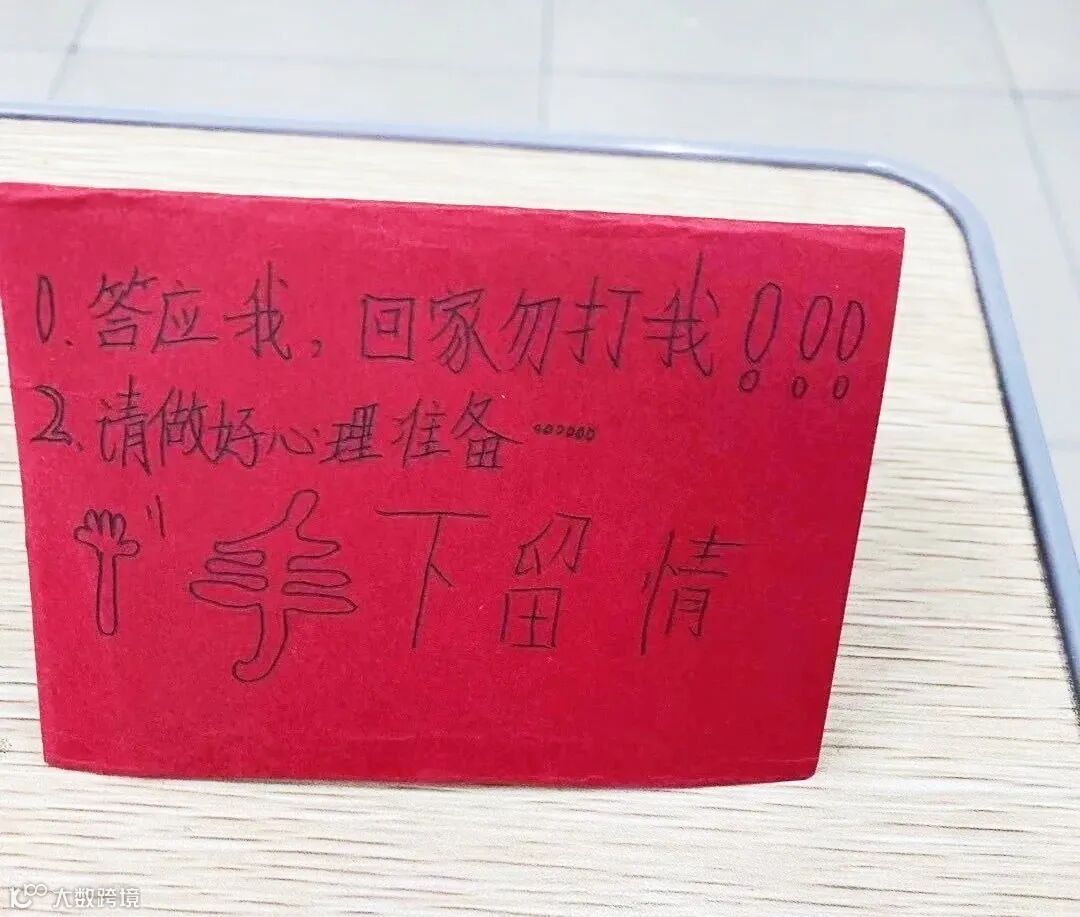 1.答应我,回家勿打我!!!
2、请做好心理准备……
手下留情
大数跨境